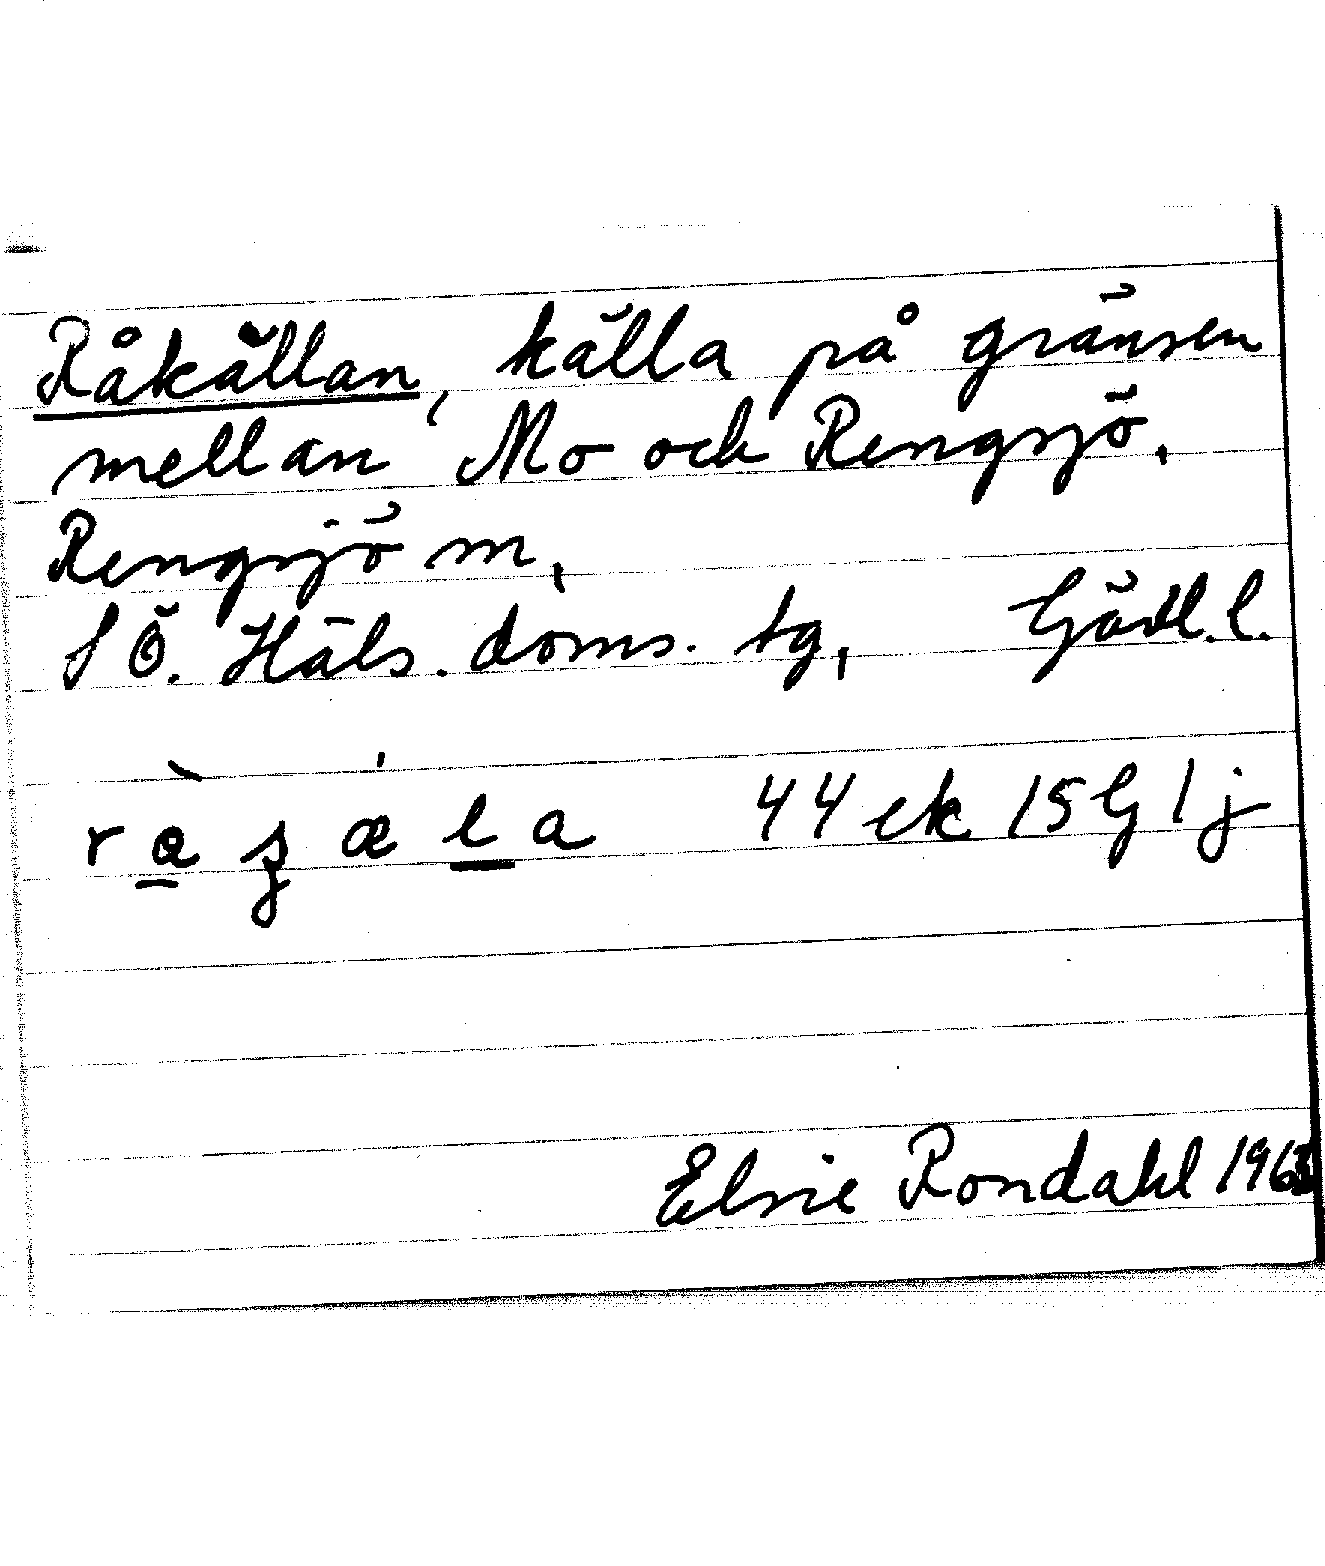 Råkällan, källa på gränsen
mellan Mo och Rengsjö.
Rengsjö m,
SÖ. Häls. doms. tg, Gävl. l.
44 ek 15 G 1 j
Elsie Rondahl 1963